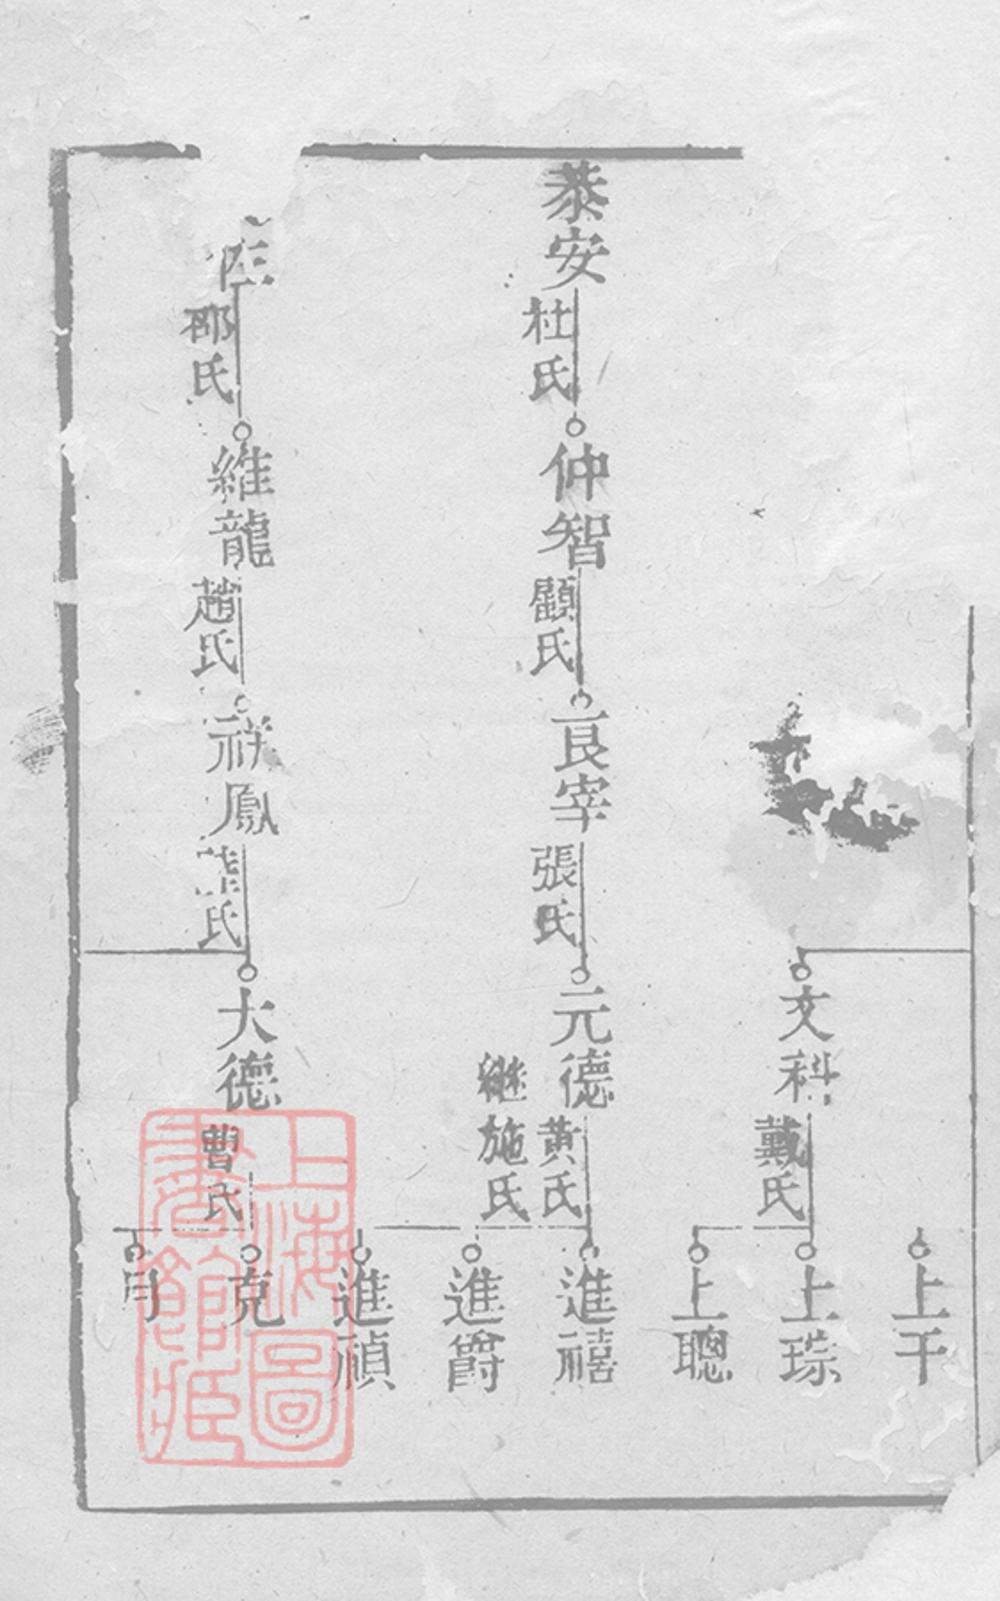 上干
文科
戴氏
上琮
上聰
恭安
杜氏
仲智
顧氏
良宰
張氏
元德
黄氏
繼施氏
進禧
進爵
進禎
邵氏
維龍
趙氏
祥鳳
氏
大德
曹氏
克
上海圖
書館藏